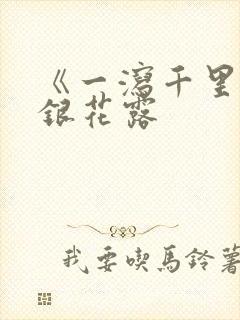 《一瀉千里
銀花露
我要喫馬鈴薯